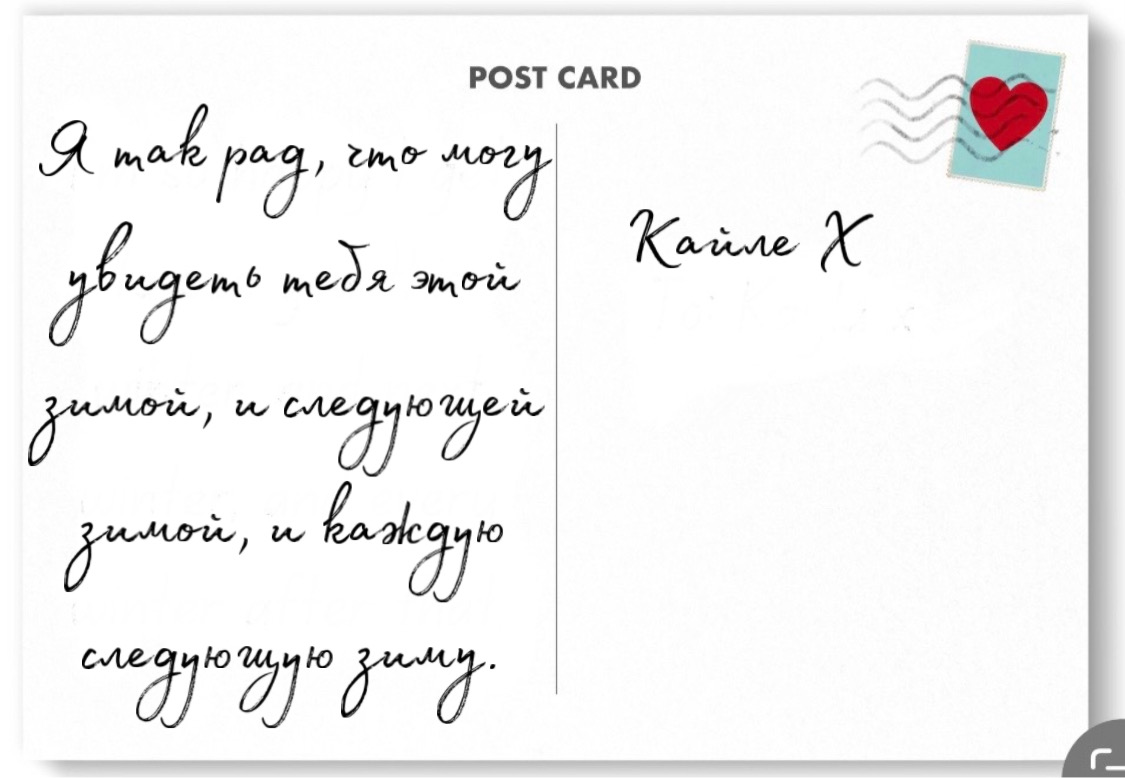 POST CARD
Я так рад, что могу
увидеть тебя этой
зимой, и следующей
зимой, и каждую
следующую зиму.
Кайле X